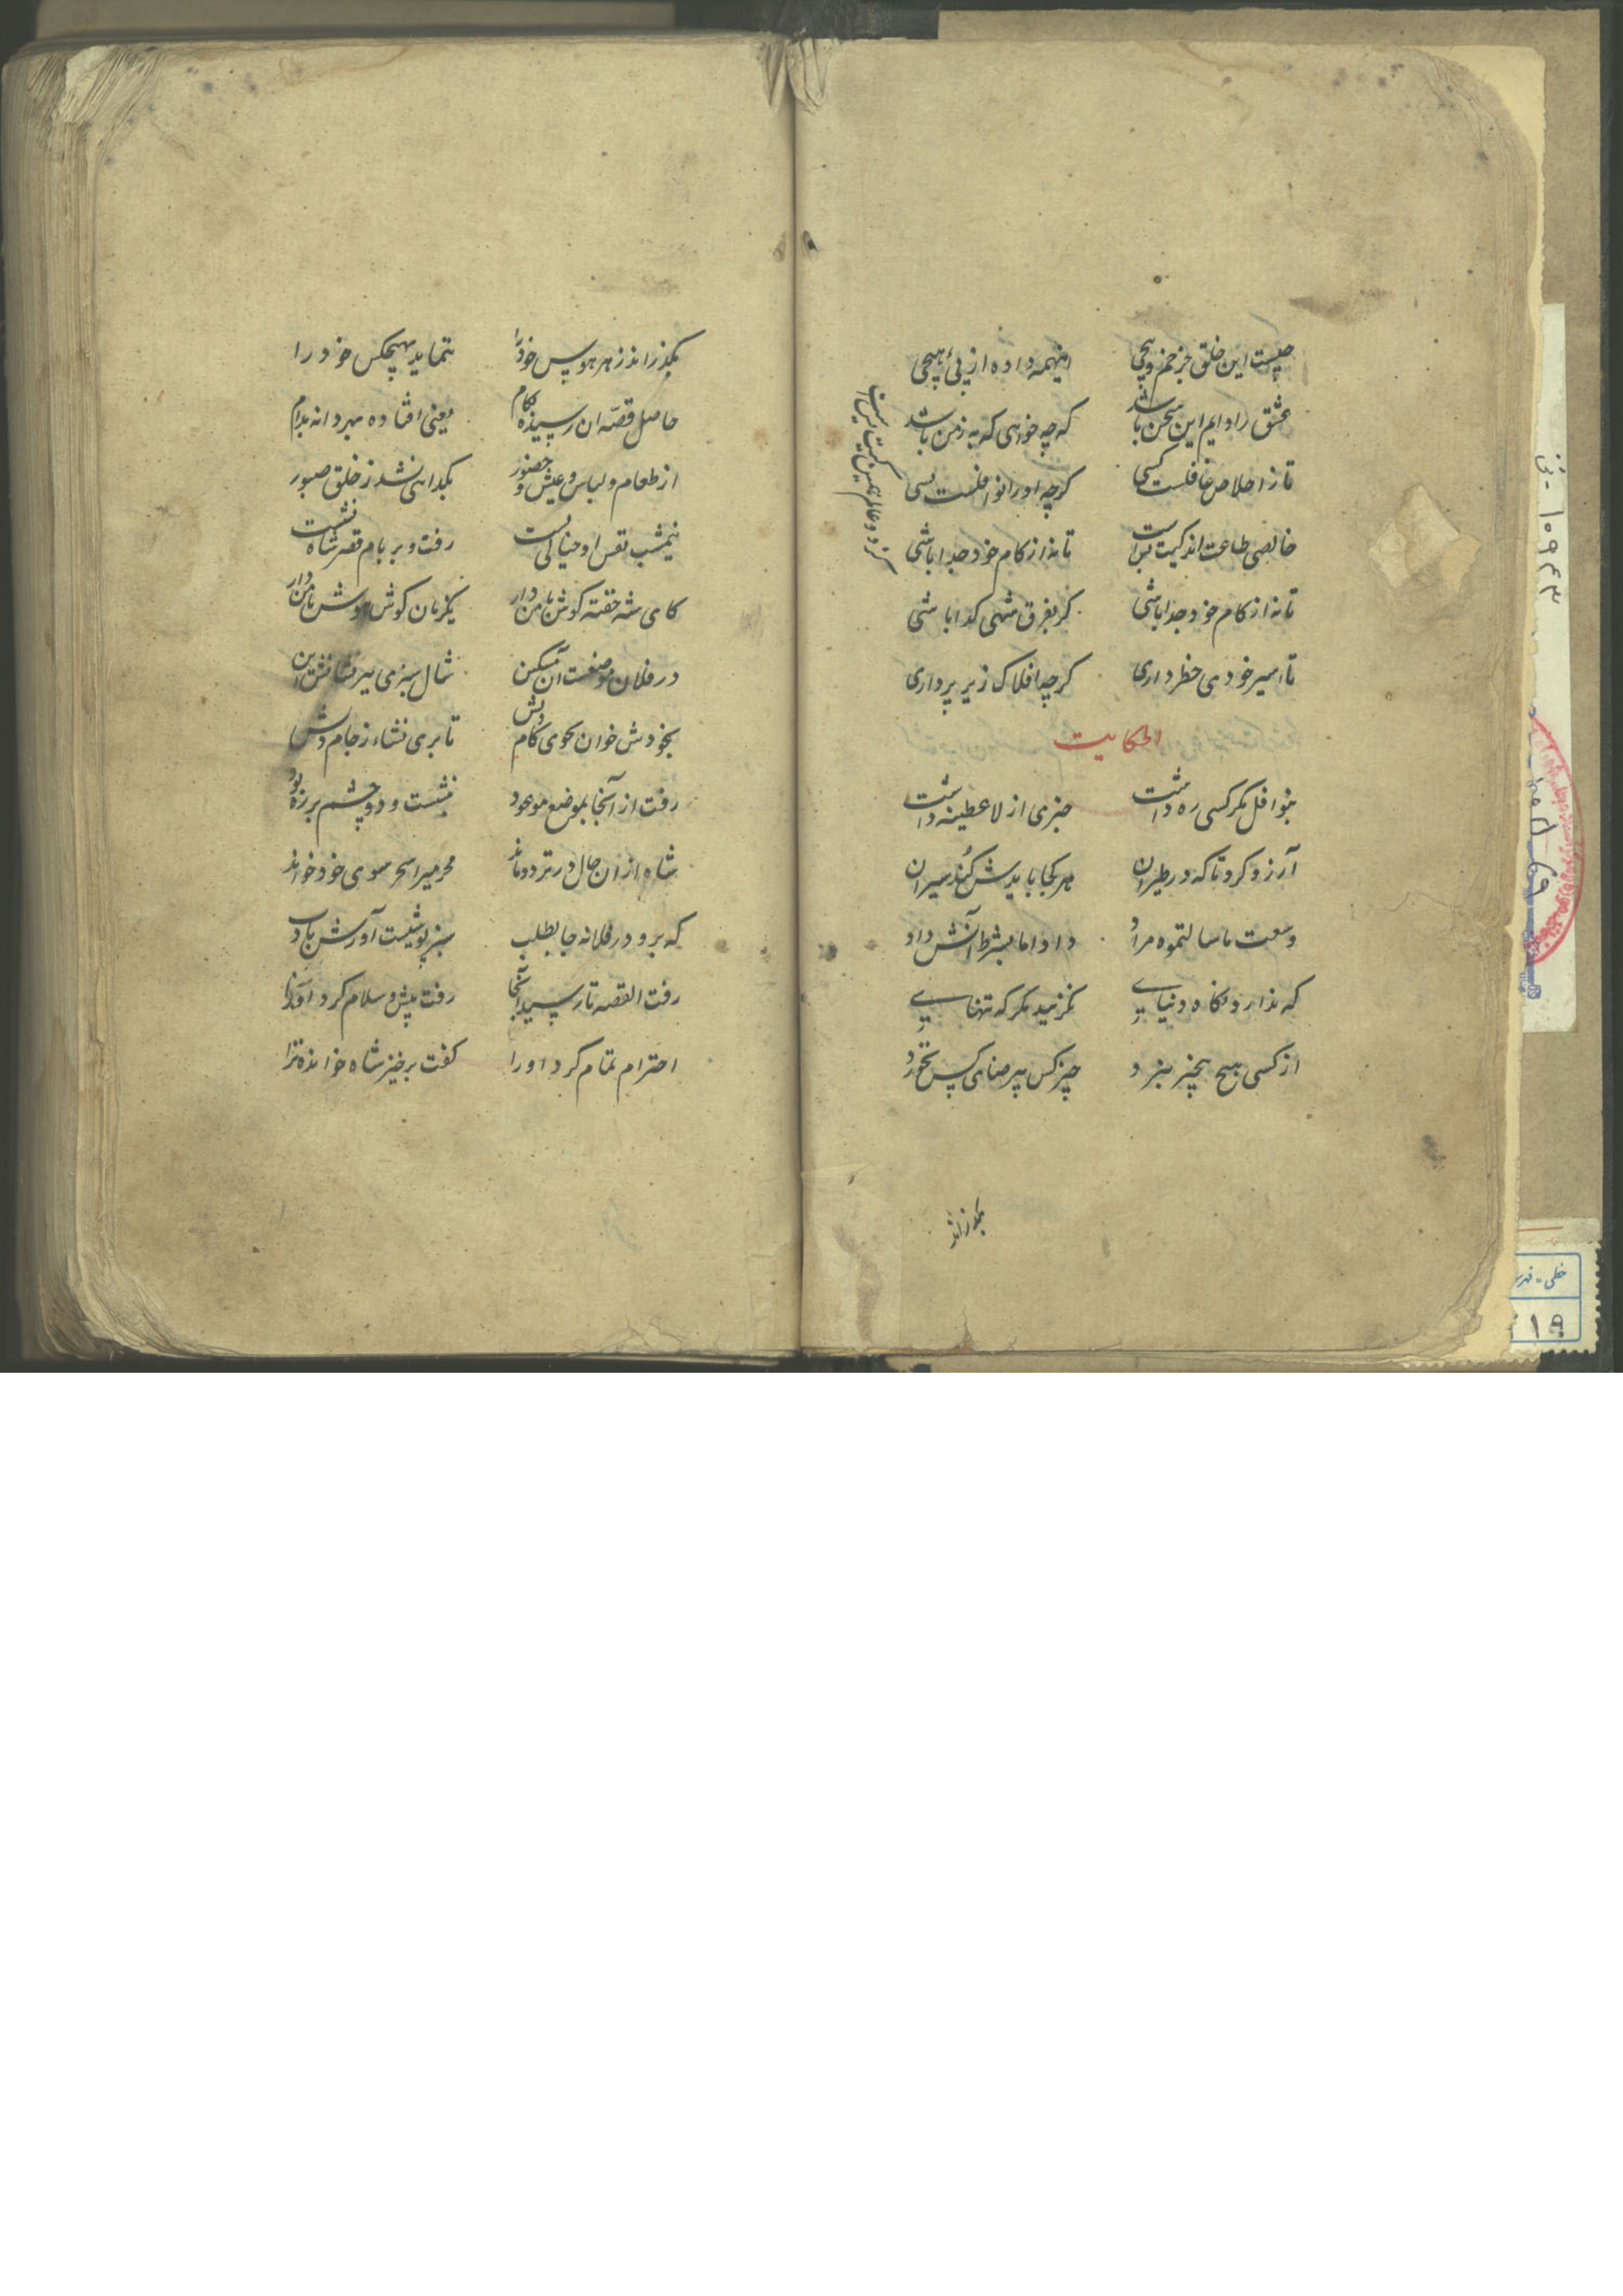 چیست این خلق جز خم و پیچی
اینهمه داده از پیٔ هیچی
عشق را دایم این سخن باشد
که چه خواهی که به ز من باشد
تا ز اخلاص غافلست کسی
گرچه او را نوافلست بسی
خالصی طاعت اندکیت بس است
تا نه از کام خود جدا باشی
تا نه از کام خود جدا باشی
گر بفرق شهی گدا باشی
تا اسیر خودی خطر داری
گرچه افلاک زیر پر داری
الحکایت
بنوافل مگر کسی ره داشت
خبری از لا عطینه داشت
آرزو کرد تا که در طیران
هر کجا بایدش کند سیران
وسعت ما سالتموه مراد
داد اما بشرط آنش داد
که ندارد نگاه دنیایی
نگزیند مگر که تنهایی
از کسی هیچ هیچیز نبرد
چیز کس بیرضای کس نخورد
بگذراند
بگذراند ز هر هوس خود را
ننماید بهیچکس خود را
حاصل قصه آن رسیده بکام
یعنی افتاده مرد دانه بدام
از طعام و لباس و عیش و حضور
بگدایی نشد ز خلق صبور
نیمشب نفس او خیالی بست
رفت و بر بام قصر شاه نشست
کای شه خفته گوش با من دار
یکزمان گوش هوش با من دار
در فلان موضعست آن مسکین
شال سبزی بسر نشانش این
بخودش خوان بجوی کام دلش
تا بری نشاء ز جام دلش
رفت از آنجا بموضع موعود
بنشست و دو چشم بر ره بود
شاه از آن حال در تردد ماند
محرمی را سحر سوی خود خواند
که برو در فلانه جا بطلب
سبز پوشیست آورش بادب
رفت القصه تا رسید آنجا
رفت پیش و سلام کرد او را
احترام تمام کرد او را
گفت برخیز شاه خوانده ترا
۱۰۹۴۳